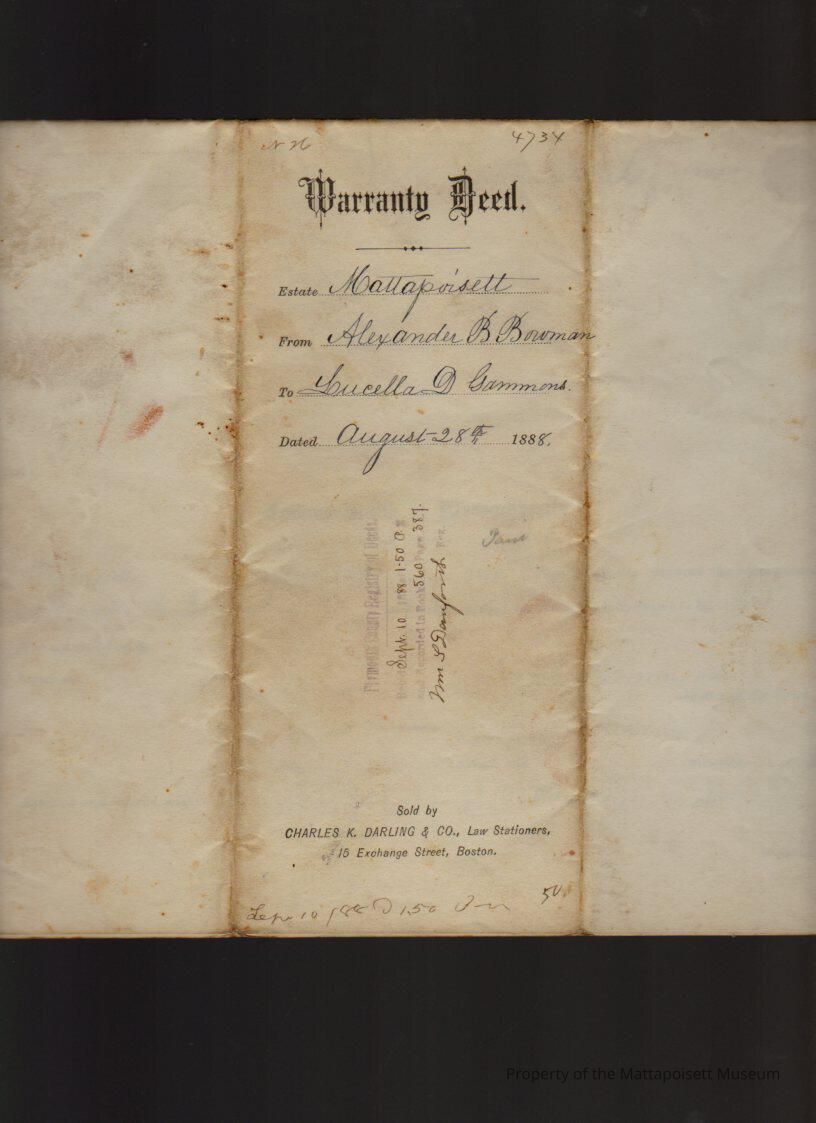 4734
Warranty Deed.
Estate Mattapoisett
From Alexander B Bowman
To Lucella D Gammons.
Dated August 28th 1888.
Plymouth County Registry of Deeds.
Sept. 10 1888 1-50 P. M.
and Recorded in Book 560 Page 387.
Wm S Danforth Reg.
Paid
Sold by
CHARLES K. DARLING & CO., Law Stationers,
15 Exchange Street, Boston.
50
Sept 10 1888 1.50 Pm
Property of the Mattapoisett Museum